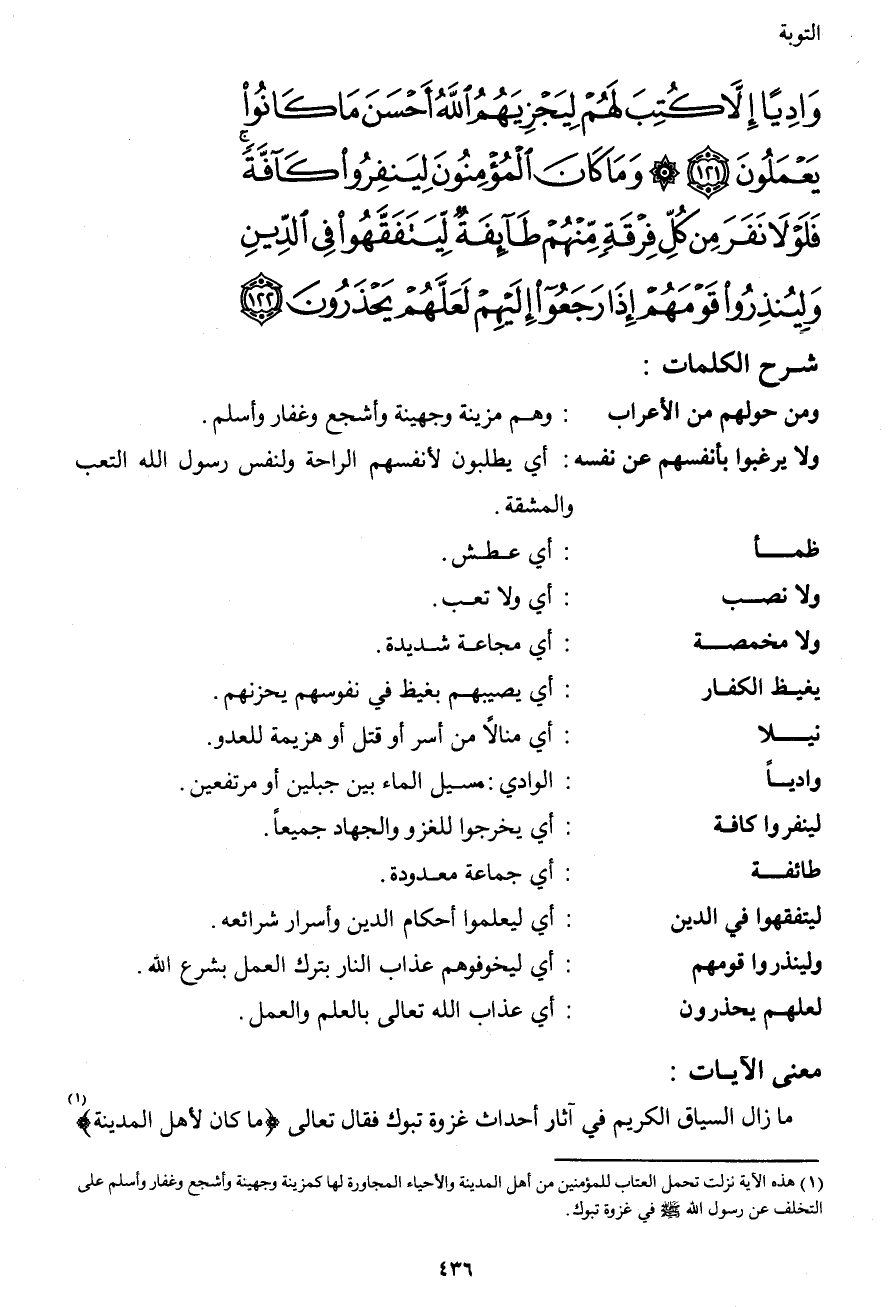 التوبة
وَادِيًا إِلَّا كُتِبَ لَهُمْ لِيَجْزِيَهُمُ ٱللَّهُ أَحْسَنَ مَا كَانُوا۟
يَعْمَلُونَ ١٢١ ۞ وَمَا كَانَ ٱلْمُؤْمِنُونَ لِيَنفِرُوا۟ كَآفَّةً ۚ
فَلَوْلَا نَفَرَ مِن كُلِّ فِرْقَةٍ مِّنْهُمْ طَآئِفَةٌ لِّيَتَفَقَّهُوا۟ فِى ٱلدِّينِ
وَلِيُنذِرُوا۟ قَوْمَهُمْ إِذَا رَجَعُوٓا۟ إِلَيْهِمْ لَعَلَّهُمْ يَحْذَرُونَ ١٢٢
شرح الكلمات :
ومن حولهم من الأعراب : وهم مزينة وجهينة وأشجع وغفار وأسلم .
ولا يرغبوا بأنفسهم عن نفسه : أي يطلبون لأنفسهم الراحة ولنفس رسول الله التعب
والمشقة .
ظمأ : أي عطش .
ولا نصب : أي ولا تعب .
ولا مخمصة : أي مجاعة شديدة .
يغيظ الكفار : أي يصيبهم بغيظ في نفوسهم يحزنهم .
نيلا : أي منالاً من أسر أو قتل أو هزيمة للعدو.
وادياً : الوادي : مسيل الماء بين جبلين أو مرتفعين .
لينفروا كافة : أي يخرجوا للغزو والجهاد جميعاً .
طائفة : أي جماعة معدودة .
ليتفقهوا في الدين : أي ليعلموا أحكام الدين وأسرار شرائعه .
ولينذروا قومهم : أي ليخوفوهم عذاب النار بترك العمل بشرع الله .
لعلهم يحذرون : أي عذاب الله تعالى بالعلم والعمل .
معنى الآيات :
ما زال السياق الكريم في آثار أحداث غزوة تبوك فقال تعالى ﴿ما كان لأهل المدينة﴾ (١)
(١) هذه الآية نزلت تحمل العتاب للمؤمنين من أهل المدينة والأحياء المجاورة لها كمزينة وجهينة وأشجع وغفار وأسلم على
التخلف عن رسول الله ﷺ في غزوة تبوك .
٤٣٦